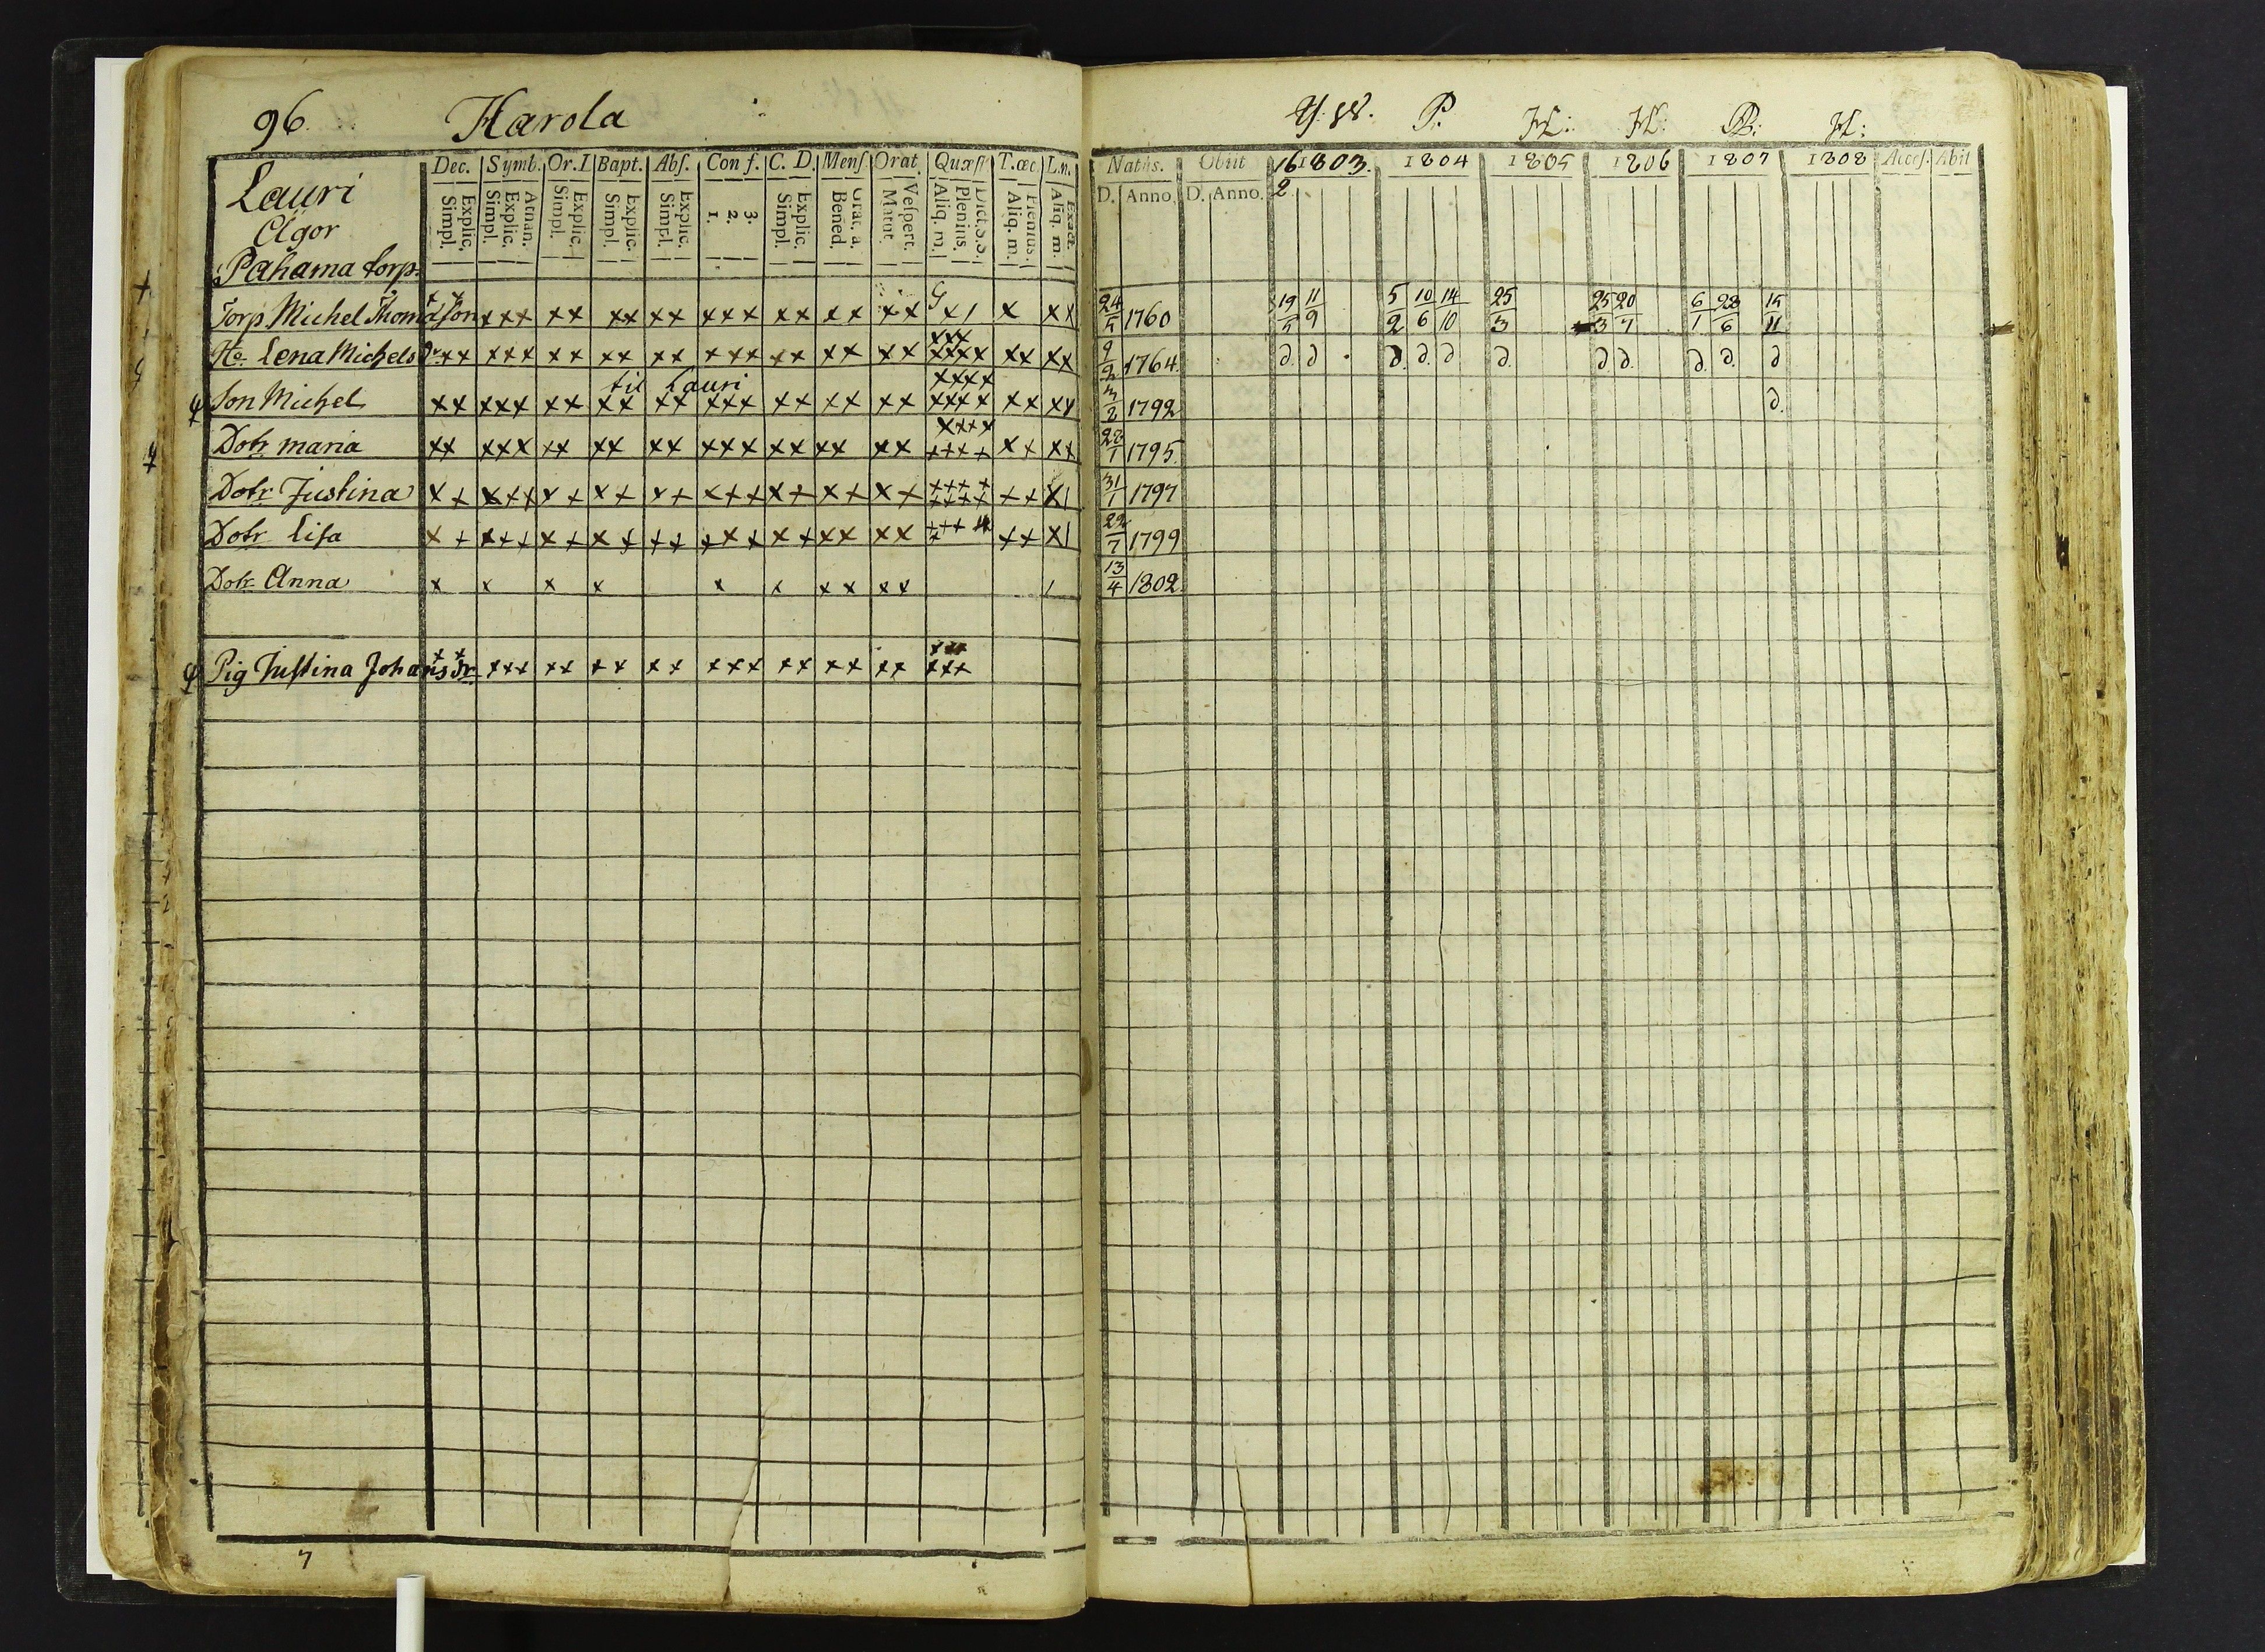 96. Harola
Lauri
Ägor
Pahama torp.
Dec. Symb. Or. I Bapt. Abſ. Conſ. C. D. Menſ Orat. Quæſt T. œc. L. n.
Explic. Simpl.
Athan. Explic. Simpl.
Explic. Simpl.
Explic. Simpl.
Explic. Simpl.
3. 2. 1.
Explic. Simpl.
Grat. a. Bened.
Veſpert. Matut.
Dict. S.S. Plenius. Aliq. m.
Plenius. Aliq. m.
Exact. Aliq. m.
Torp. Michel Thomasson xx xxx xx xx xx xxx xx xx xx x/ x xx
Ho. Lena Michels dr xx xxx xx xx xx xxx xx xx xx xxx xxxx xx xx
til Lauri
Son Michel xx xxx xx xx xx xxx xx xx xx xxxx xxxx xx xx
Dotr maria xx xxx xx xx xx xxx xx xx xx xxxx xxxx xx xx
Dotr Justina xx xxx xx xx xx xxx xx xx xx xxxx xxxx xx x/
Dotr Lisa xx xxx xx xx xx xxx xx xx xx xxx xx x/
Dotr Anna x x x x x x xx xx /
Pig Justina Johans dr xx xxx xx xx xx xxx xx xx xx xxx
7
P. H: H: H:
Natus. Obiit 16 1803. 1804 1805 1806 1807 1808 Acceſ. Abit
D. Anno. D. Anno. 2
24/5 1760 19/5 11/9 5/2 10/6 14/10 25/3 25/3 20/7 6/1 28/6 15/11
9/2 1764. d. d. d. d. d d. d d. d. d. d
3/8 1792 d.
28/1 1795.
31/1 1797
22/7 1799
13/4 1802.